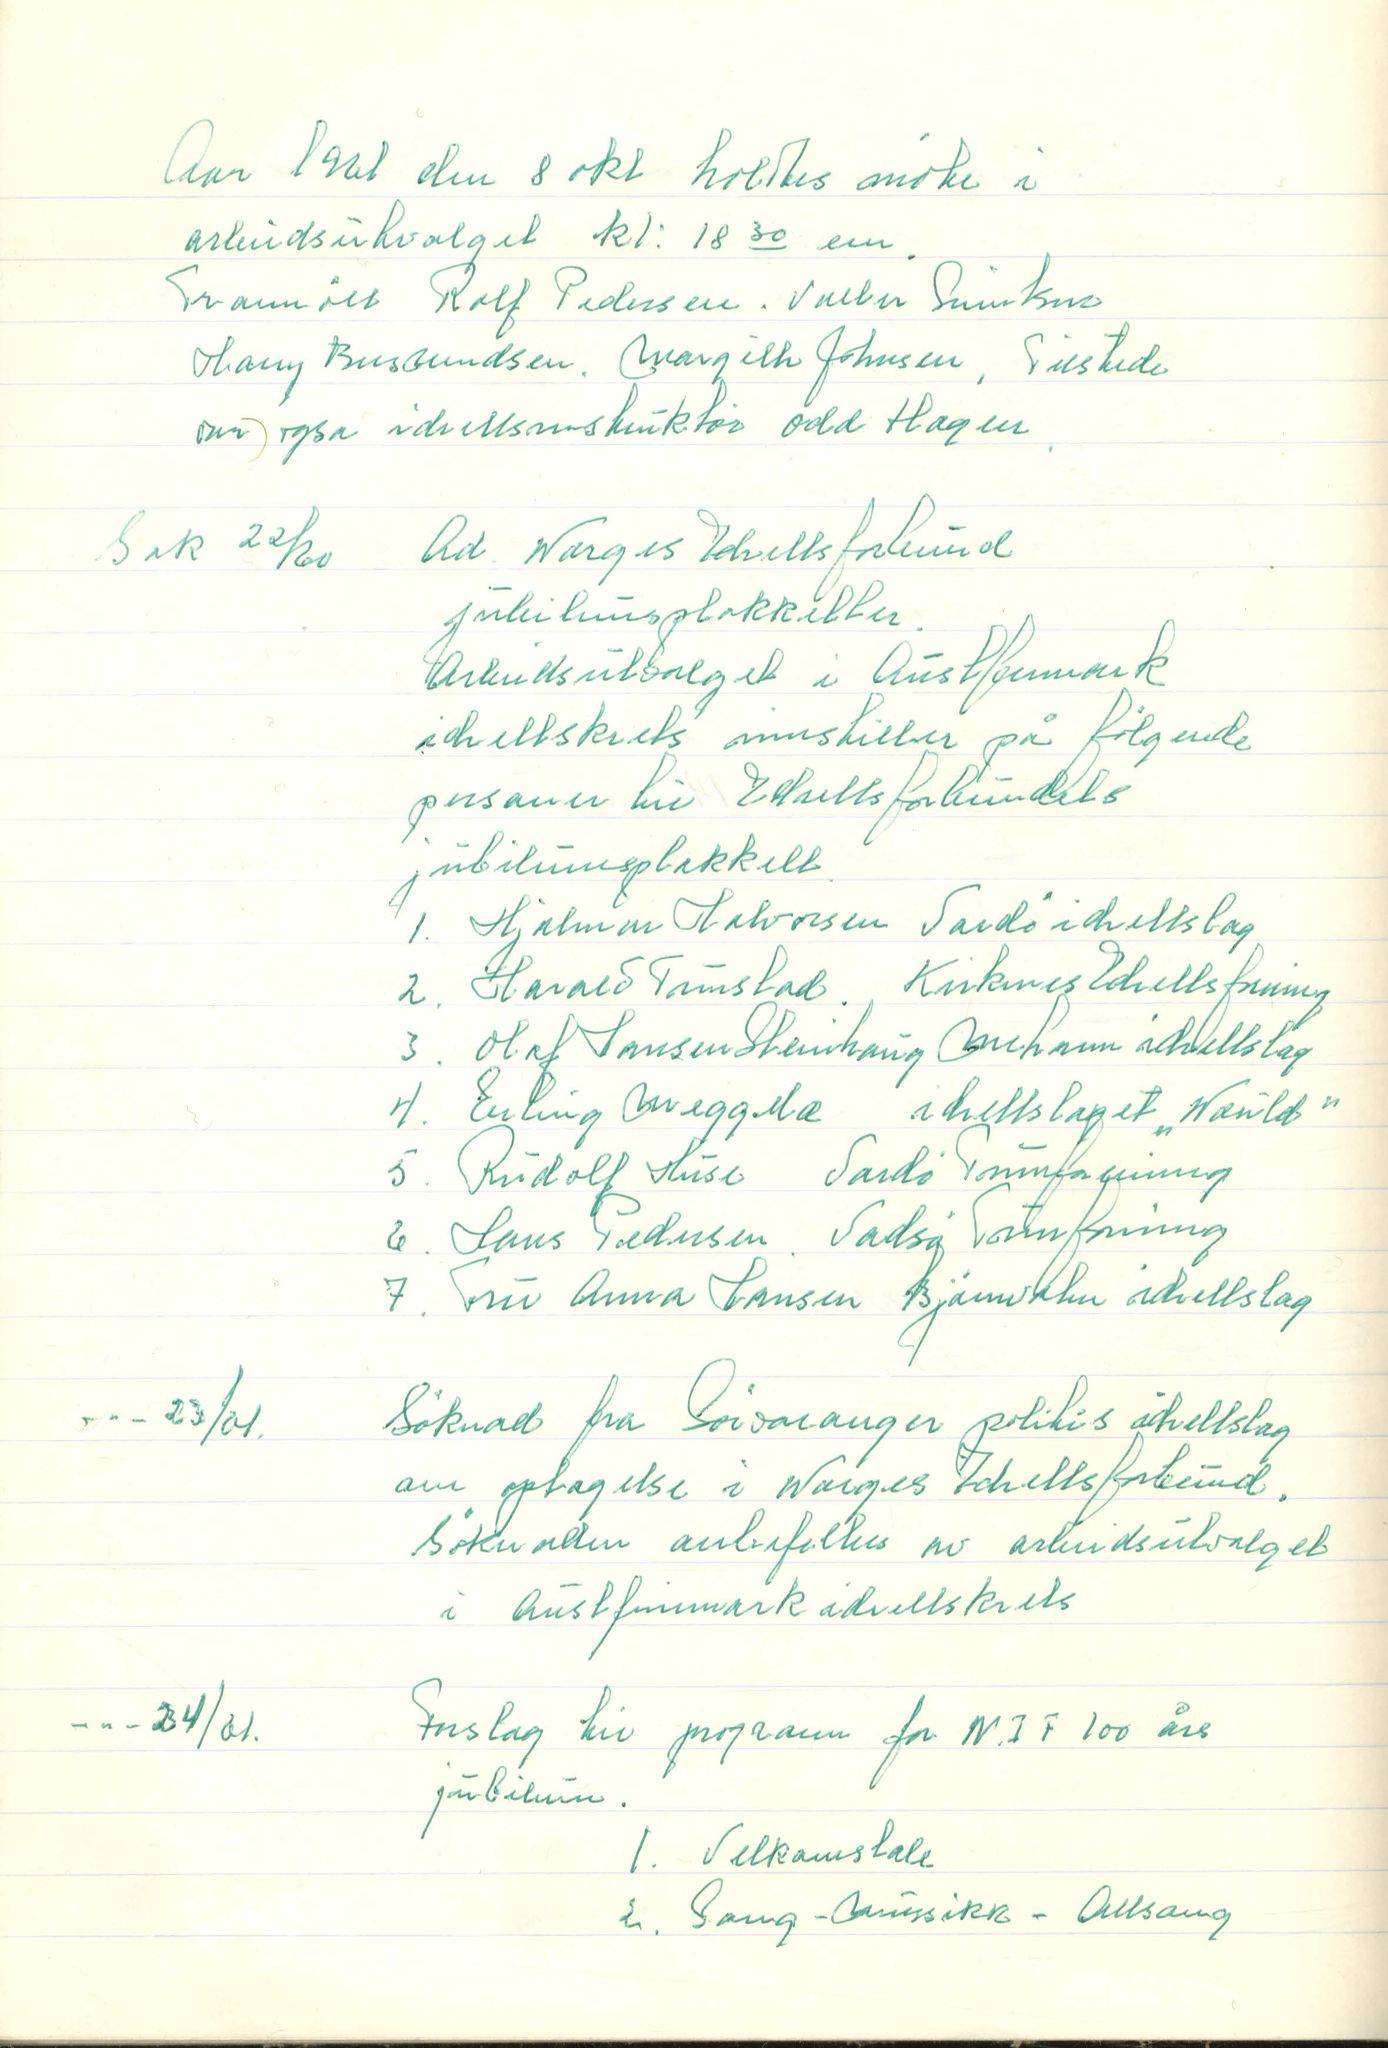 Aar 1961 den 8 okt holtes möte i
arbeidsutvalget kl: 18 30 em.
Frammött Rolf Pedersen. Valter
Harry Busvundsen. Margith Johnsen, Tilstede
var også idrettsinstruktör Odd Hagen.
Sak 22/60 Ad Norges Idrettsforbund
jubileumsplakketter.
Arbeidsutvalget i Austfinmark
idrettskrets innstiller på fölgende
personer til Idrettsforbundets
jubileumsplakkett
1. Hjalmar Halvorsen Vardö idrettslag
2. Harald Tunstad. Kirkenes Idrettsforening
3. Olaf Hansen Steinhaug Mehamn idrettslag
4. Erling Meggelæ idrettslaget "Næuld"
5. Rudolf Huse Vardö Turnforening
6. Hans Pedersen. Vadsö Turnforening
7. Fru Anna Hansen Bjørnvatn idrettslag
-"- 23/61. Söknad fra Sörvaranger politis idrettslag
om optagelse i Norges Idrettsforbund.
Söknaden anbefaltes av arbeidsutvalget
i Austfinnmark idrettskrets
-"- 24/61. Forslag til program for N.I.F 100 års
jubileum.
1. Velkomstale
2. Sang - Mussikk - Allsang